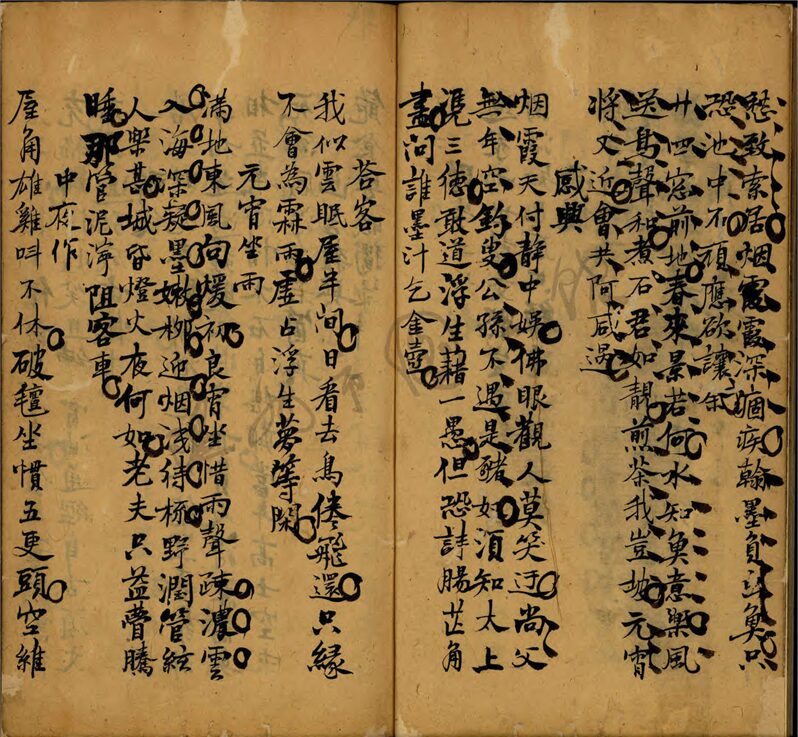 致索居烟霞霞深痼疾翰墨負魚只
恐池中不願應欲讓
廿四窓前地春來景若何水知魚意樂風
送鳥聲和煮石君如靚煎茶我豈坡元宵
將又近會共阿咸過
感興
烟霞天付靜中娛佛眼觀人莫笑迂尚父
無年空釣叟公孫不遇是豬奴須知太上
憑三德敢道浮生藉一愚但恐詩腸芒角
盡問誰墨汁乞金壺
荅客
我似雲眠屋半間日看去鳥倦飛還只緣
不會為霖雨虛占浮生夢等閑
元宵坐雨
滿地東風向煖初良宵坐惜雨聲踈濃雲
入海深凝墨嫩柳迎烟淺待梳野潤管絃
人樂甚城昏燈火夜何如老夫只益瞢騰
睡那管泥濘阻客車
中夜作
屋角雄雞呌不休破氊坐慣五更頭空維